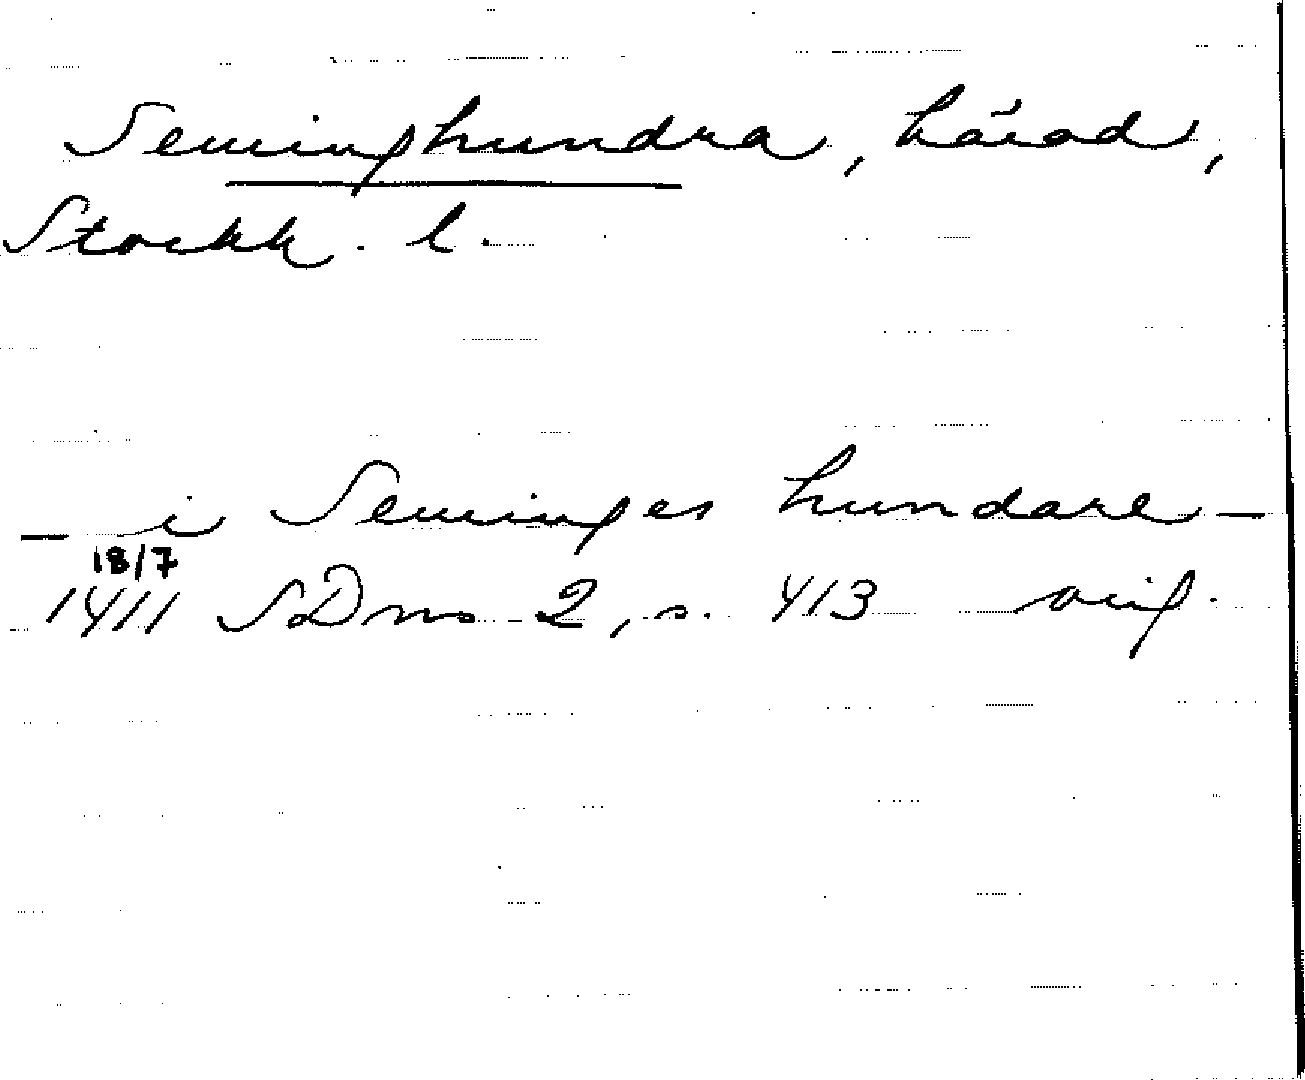 Seminghundra, härad,
Stockh. l.
— i Seminges hundare —
18/7
1411 SDns 2, s. 413 orig.